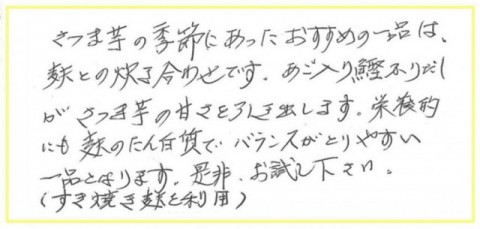 さつま芋の季節にあったおすすめの一品は、
麩との炊き合わせです。あご入り鰹ふりだし
がさつま芋の甘さを引き出します。栄養的
にも麩のたん白質でバランスがとりやすい
一品となります。是非、お試し下さい。
(すき焼き麩を利用)